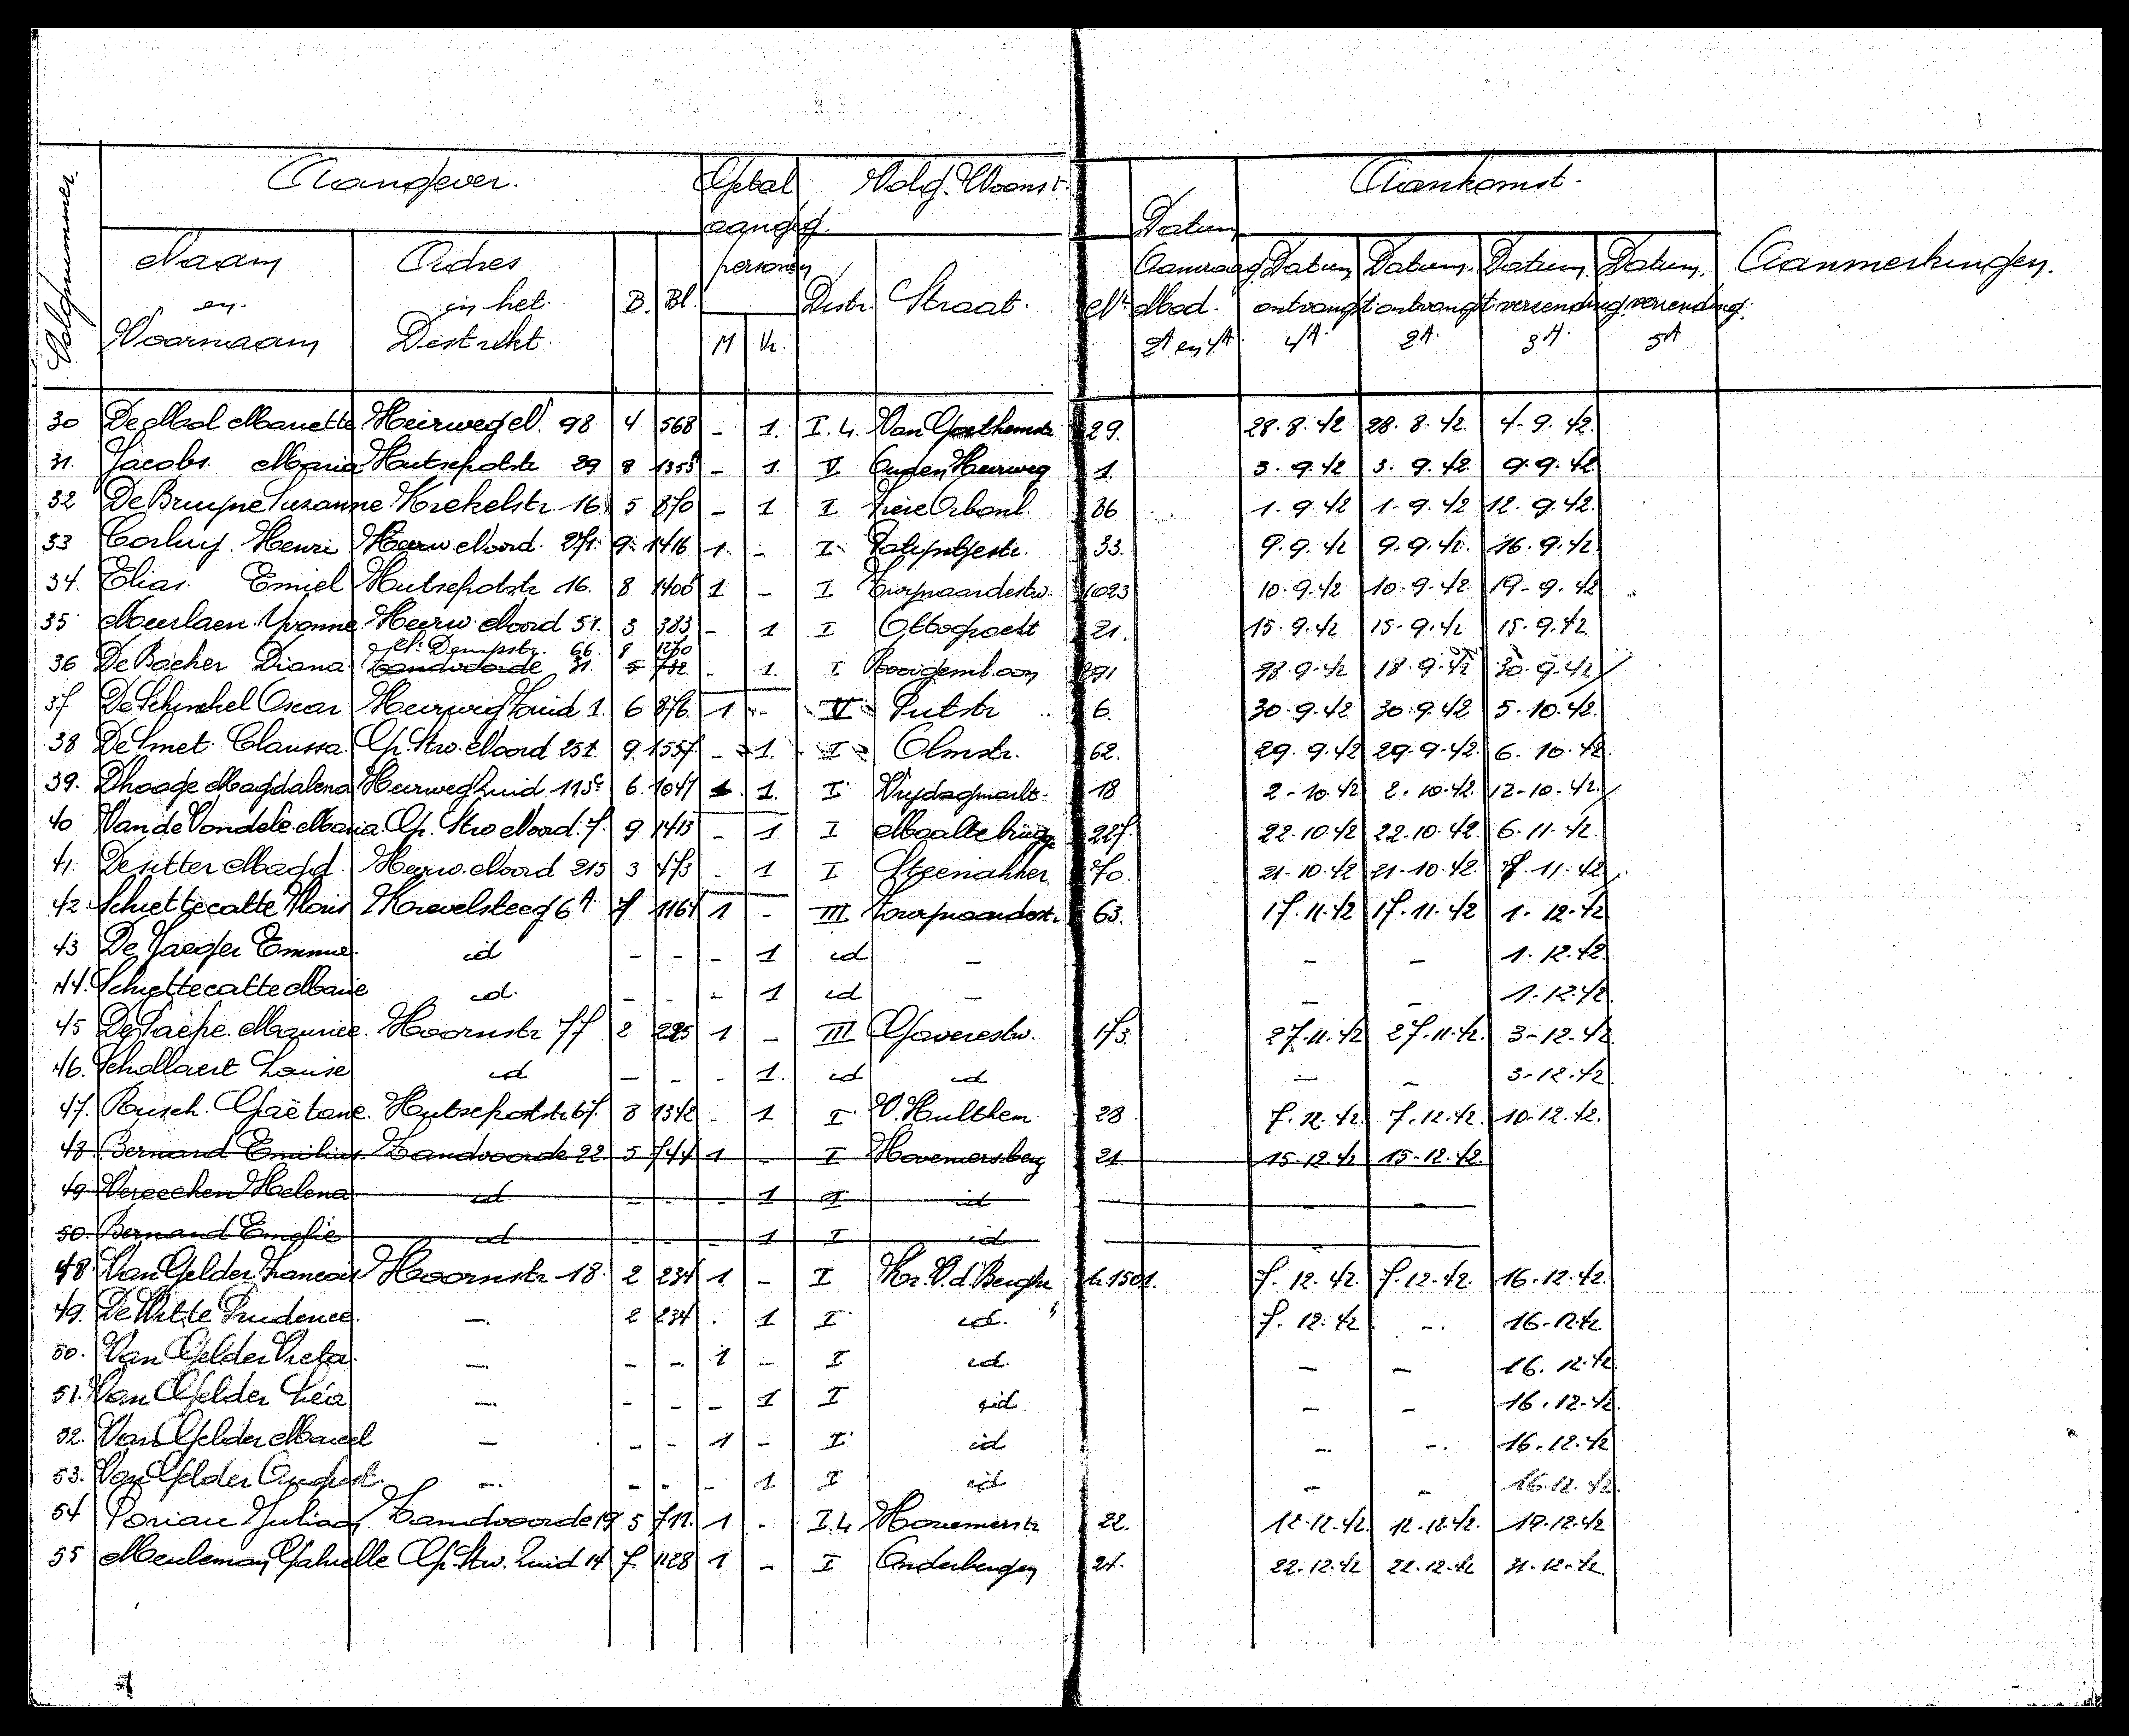 Volgnummer. Aangever. Getal aangeg. personen Volg. Woonst. Datum Aankomst. Aanmerkingen.
Naam en Voornaam Adres in het Distrikt. B. Bl. M Vr. Distr. Straat. Nr. Aanvraag Mod. 2A en 4A Datum ontvangst 4A Datum. ontvangst 2A. Datum. verzending 3A. Datum. verzending. 5A
30 De Mol Mariette Heirweg N. 98 4 568 - 1. I.4. Van Goethemstr 29. 28.8.42 28.8.42. 4-9.42.
31. Jacobs. Maria Hutsepotstr 29 8 1355 - 1. V Ouden Heirweg 1. 3.9.42 3.9.42. 9.9.42
32 De Bruyne Suzanne Krekelstr. 16 5 870 - 1 I Frère Orbanl. 36 1.9.42 1.9.42 12.9.42.
33 Corluy. Henri Heerw Noord. 271. 9. 1416 1. - I 33. 9.9.42 9.9.42. 16.9.42
34. Elias. Emiel Hutsepotstr 16. 8 1 - I 1023 10.9.42 10.9.42. 19-9.42
35 Meerlaen. Yvonne. Heerw. Noord 51. 3 383 - 1 I Ottogracht 21. 15.9.42 15.9.42 15.9.42.
66. 8
36 De Backer Diana Zandvoorde 31. 5 732. - 1. I 18.9.42 18.9.42 30.9.42
37 De Schinckel Oscar Heirweg Zuid 1. 6 876. 1 - V Putstr 6. 30.9.42 30.9.42 5-10.42.
38 De Smet. Clarissa. Gr. Stw. Noord 251. 9. 1557 - 1. I Olmstr. 62. 29.9.42 29.9.42. 6.10.42
39. Dhaage Magdalena Heerweg Zuid 115c 6. 1047 1. I Vrijdagmarkt. 18 2-10.42 2.10.42. 12-10.42.
40 Van de Vondele Maria. Gr. Stw Noord. 7. 9 1413 - 1 I Maaltebrugge 227. 22.10.42 22.10.42. 6.11.42.
41. De sutter Magd. Heerw. Noord 215 3 473 - 1 I Steenakker 70. 21.10.42 21.10.42. 7.11.42
42. Schiettecatte Floris Krevelsteeg 6A 7 1161 1 - III 63. 17.11.42 17.11.42 1.12.42
43 De Jaeger Emma. id - - - 1 id - - - 1.12.42.
44. Schiettecatte Marie id. - - - 1 id - - - 1.12.42.
45 De Paepe. Maurice. Hoornstr 77. 2 225 1 - III Gaverestw. 173. 27.11.42 27.11.42. 3-12.42
46. Schollaert Louise id - - - 1. id id - - 3-12.42.
47. Busch. Gaëtane. Hutsepotstr 67. 8 1342 - 1 I V. Hulthem 28. 7.12.42. 7.12.42. 10.12.42.
48. Bernard Emilius. Zandvoorde 22. 5 744 1 - I Hovemersberg 21. 15-12.42 15-12.42.
49 Vereecken Helena id - - - 1 I id - -
50. Bernard Emelie id - - - 1 I id -
48. Van Gelder Francois Hoornstr 18. 2 234 1 - I Kr. V.d. Berghe 7.12.42. 7.12.42. 16.12.42.
49. De Witte Prudence. -. 2 234 . 1 I id. 7.12.42 -. 16.12.42.
50. Van Gelder -. - - 1 - I id. - - 16.12.42.
51. Van Gelder Léa -. - - - 1 I id - - 16.12.42.
52. Van Gelder Marcel - - - 1 - I id - -. 16.12.42
53. Van Gelder -. - - - 1 I id - - 16.12.42.
54 Poriau Juliaan. Zandvoorde 19 5 711. 1 - I.4 Hovemerstr 22. 12-12.42. 12-12.42. 19.12.42
55 Meuleman Gabrielle Gr. Stw. Zuid 14 7. 1128 1 - I Onderbergen 24. 22.12.42 22.12.42 31.12.42.